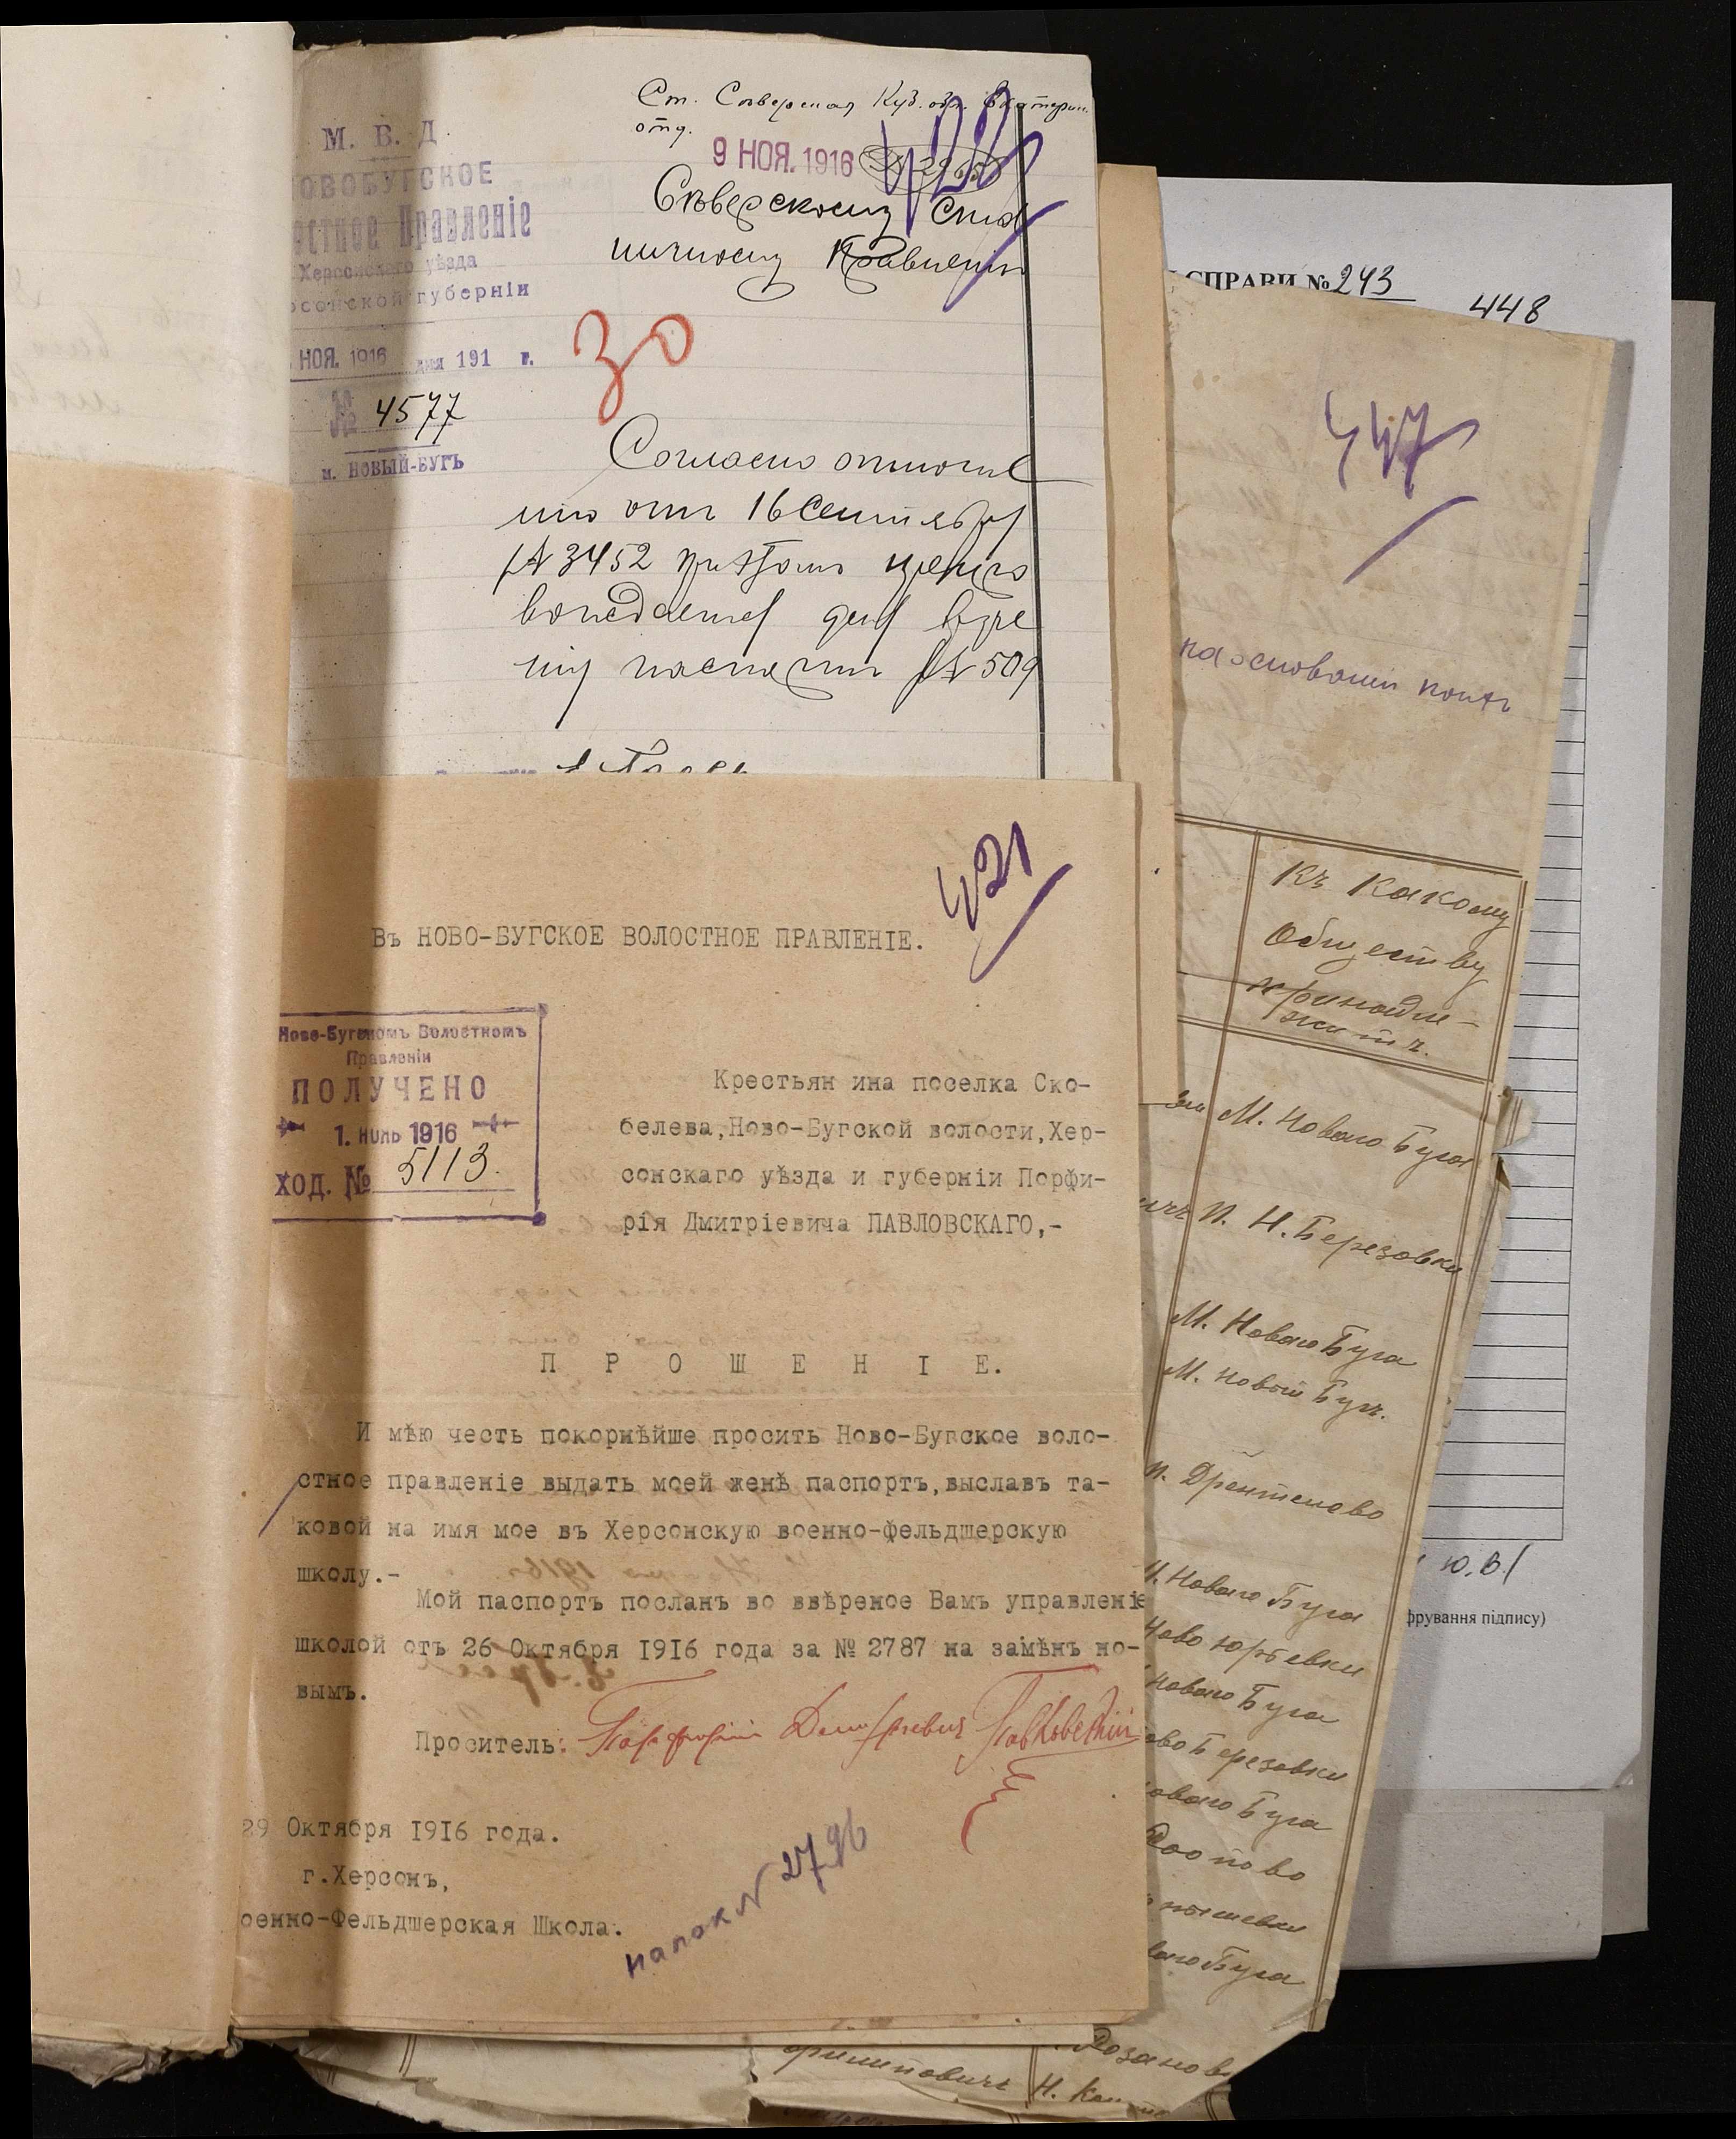 М. В. Д.
ОВОБУГСКОЕ
остное Правленіе
Херсонскаго уѣзда
рсонской губерніи
НОЯ. 1916 дня 191 г.
№ 4577
м. НОВЫЙ-БУГЪ
Ст. Северская Куб. обл. Екатерин.
отд.
9 НОЯ. 1916
422
Северскому Ста
ничному Правленію
30
Согласно отноше
нію отъ 16 Сентября
№ 3452 при этомъ
вруче
нія паспортъ № 509
421
Въ НОВО-БУГСКОЕ ВОЛОСТНОЕ ПРАВЛЕНІЕ.
Ново-Бугскомъ Волостномъ
Правленіи
ПОЛУЧЕНО
1. НОЯБ 1916
ХОД. № 5113.
Крестьян ина поселка Ско-
белева,Ново-Бугской волости,Хер-
сонскаго уѣзда и губерніи Порфи-
рія Дмитріевича ПАВЛОВСКАГО,-
П Р О Ш Е Н І Е.
И мѣю честь покорнѣйше просить Ново-Бугское воло-
стное правленіе выдать моей женѣ паспортъ,выславъ та-
ковой на имя мое въ Херсонскую военно-фельдшерскую
школу.-
Мой паспортъ посланъ во ввѣреное Вамъ управленіе
школой отъ 26 Октября 1916 года за № 2787 на замѣнъ но-
вымъ.
Проситель: Порфирій Дмитріевич Павловскій
29 Октября 1916 года.
г.Херсонъ,
оенно-Фельдшерская Школа.
на пок № 2796
СПРАВИ № 243
448
447
на основании
Къ какому
Обществу
принадле-
житъ.
М. Новаго Буга
П. Н. Березовки
М. Новаго Буга
М. Новый Бугъ.
п. Дрентелово
М. Новаго Буга
Ново Юрьевки
Новаго Буга
ово Березовки
оваго Буга
ваго Буга
Розанов
Филиповичъ
Ю.В/
фрування підпису)